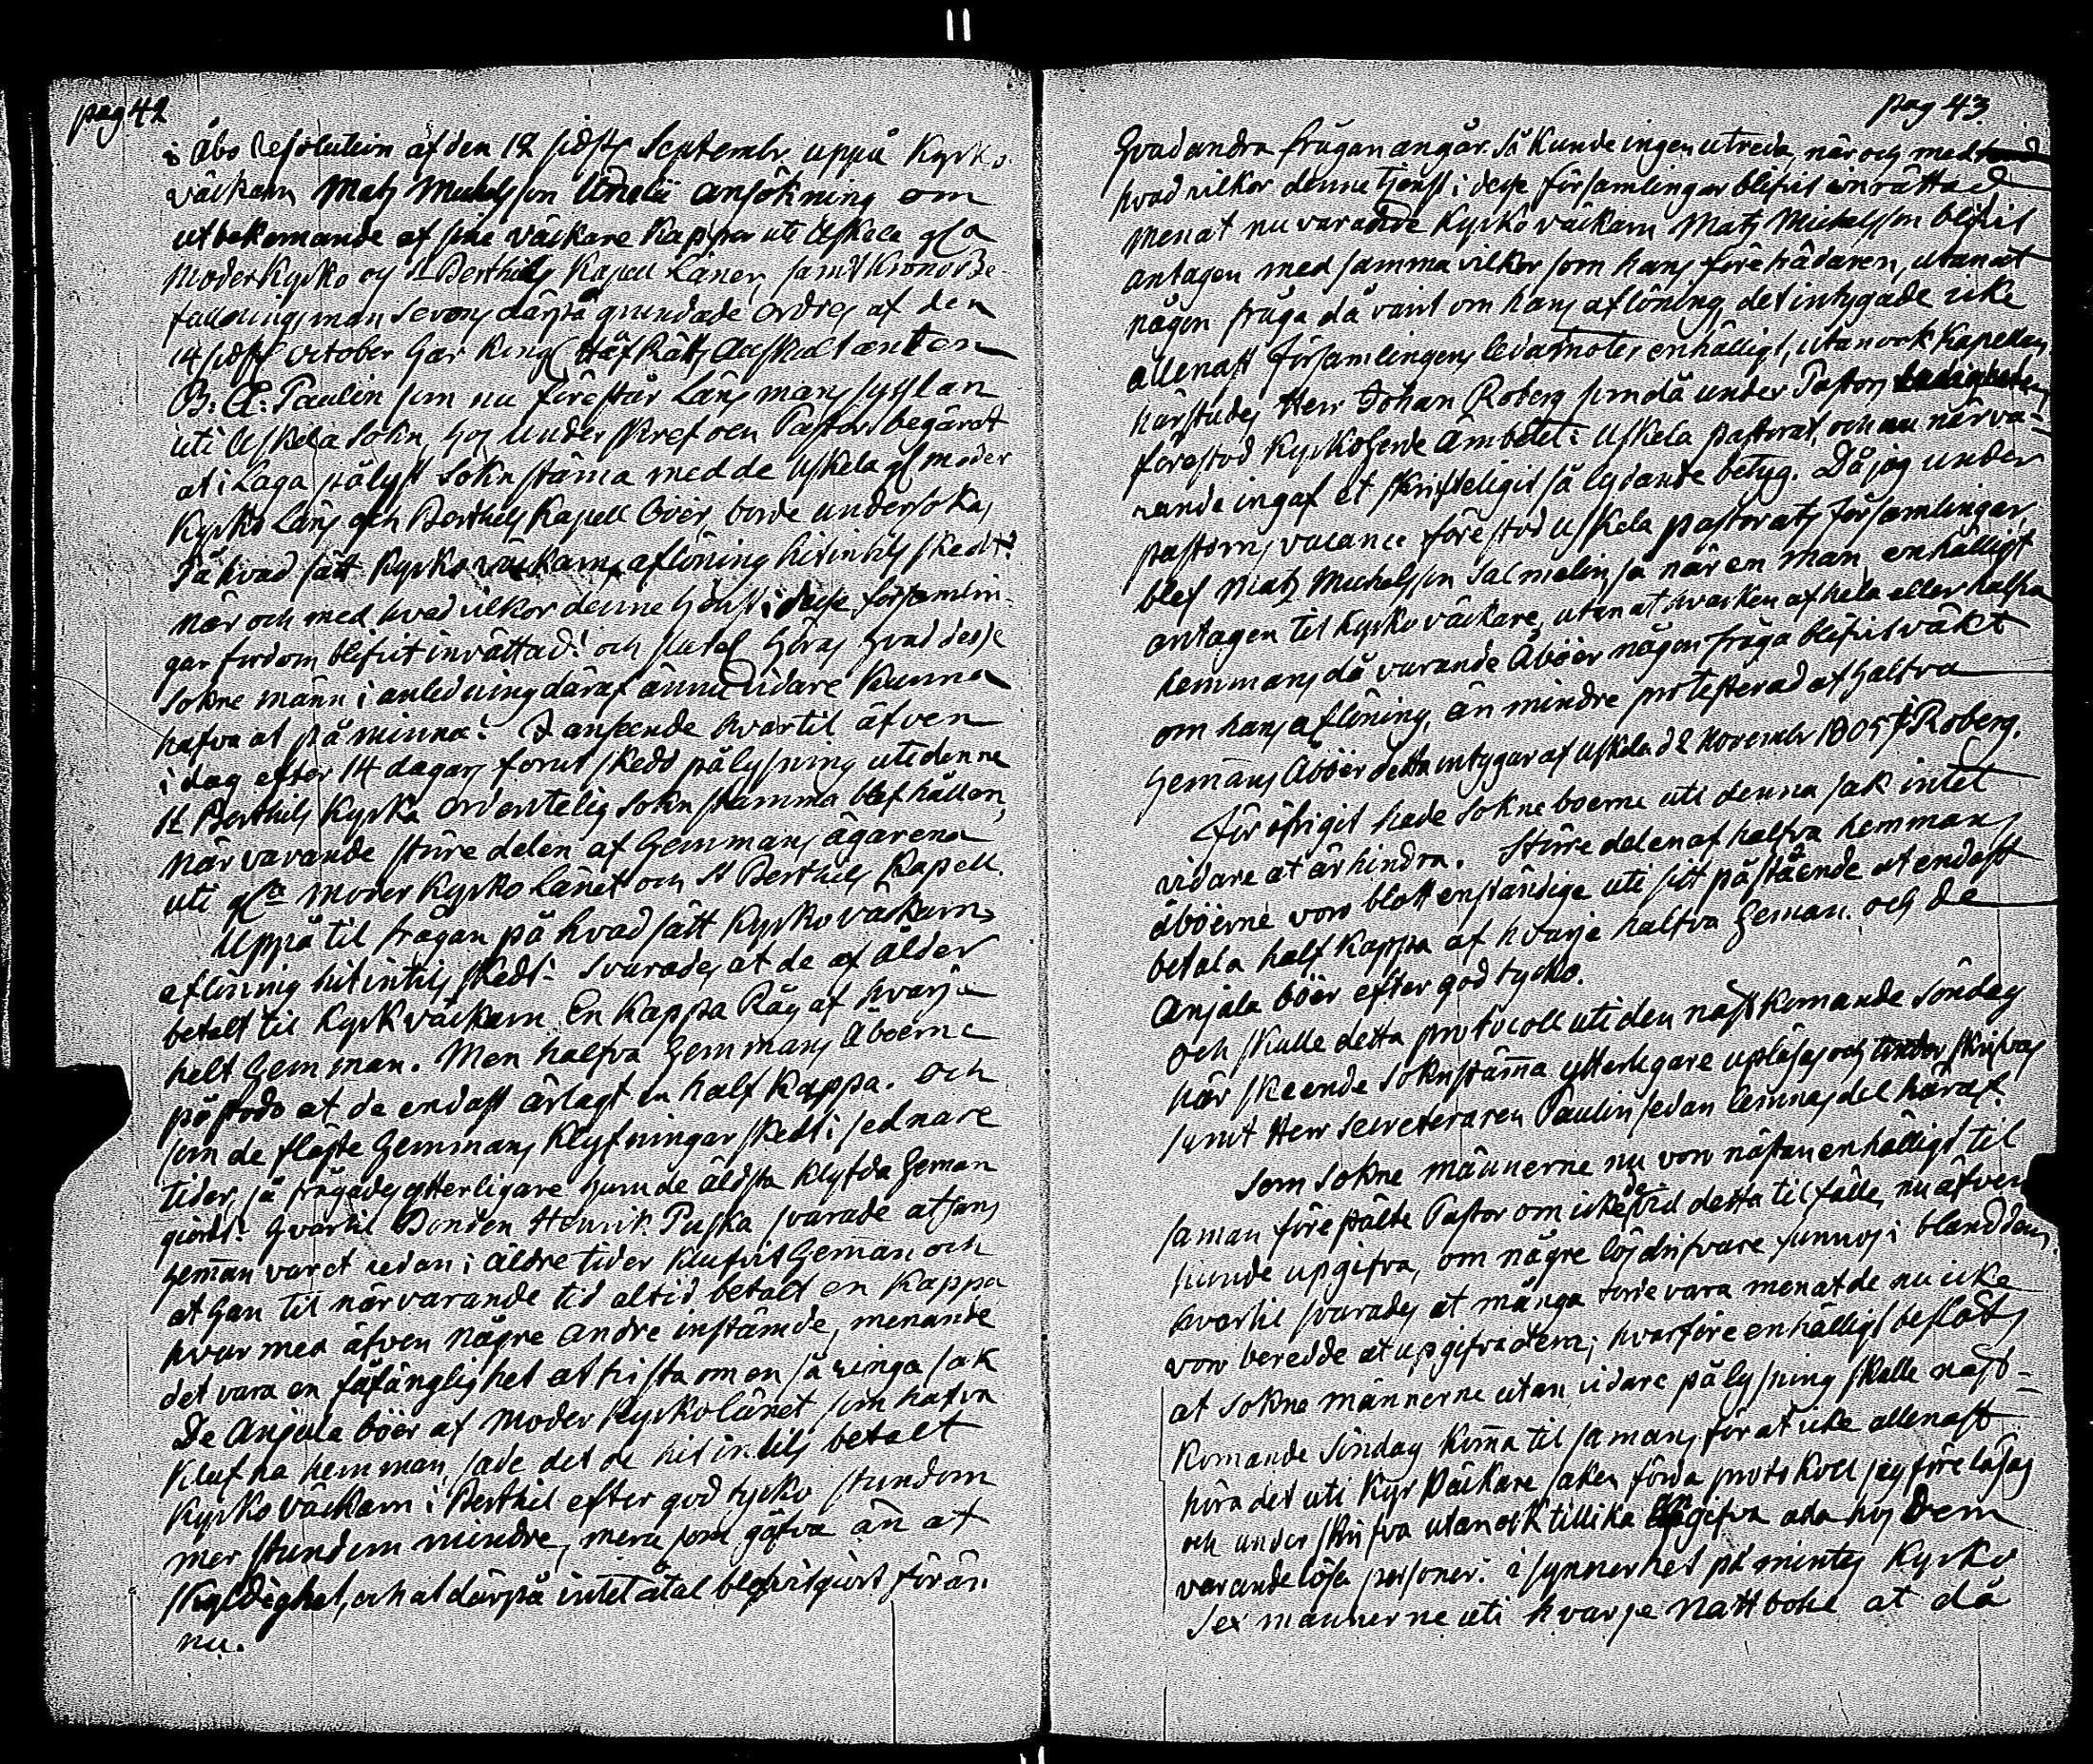 pag 42
i Åbo Resolution af den 12 sidstl. Septembr. uppå Kyrko-
väckarn Matz Michelsson ansökning om
utbekomande af sine väckare Kappor uti Uskela
Moderkyrko och St Berthils Kapell Länen, samt Krono Be-
fallningsman Sevons därpå grundade Ordres af den
14 sidstl. October har Kongl. Håf Rätts Auscultanten
B. E. Paulin som nu förestår Länsmans sysslan
uti Uskela Sokn, hos underskrefven Pastor begärat
at i Laga pålyst Soknstäma med de Uskela moder
Kyrko Läns och Berthils Kapell Boer, borde undersökas
På hvad sätt Kyrkoväckarns aflöning hitintils skedt?
när och med hvad vilkor denne tjenst i desse församlin-
gar fordom blifvit inrättad? och slutel. höras hvad desse
Sokne männ i anledning däraf ännu vidare kunna
hafva at påminna? I anseende hvartil äfven
i dag efter 14 dagars forut skedd pålysning uti denne
St Berthils Kyrka ordentelig Soknstämma blef hållen,
Närvarande större delen af Hemmans ägarena
uti Moder Kyrko Länet och St Berthils Kapell.
Uppå til frågan på hvad sätt Kyrkoväckarns
aflöning hitintils skedt? Svarades at de af ålder
betalt til Kyrkväckarn En Kappa Råg af hvarje
helt Hemman. Men halfva Hemmans Åboerne
påstodo at de endast ärlagt en half Kappa. Och
som de fläste Hemmans Klyfningar skedt i sednare
tider, så frågades ytterligare hum de äldsta klyfda Heman
giordt? Hvartil Bonden Henrik Puska svarade at hans
Heman varet redan i äldre tider klufvit Heman och
at han til närvarande tid altid betalt en Kappa
hvar med äfven någre andre instämde, menande
det vara en fåfänglighet at trista om en så ringa sak
De Anjala böer af Moder Kyrkolänet som hafva
klufna hemman, sade det de hitintils betalt
Kyrkoväckarn i Berthil efter god tycko stundom
mer stundom mindre, mera som gåfva än at
skyldighet, och at därpå intet åtal blefvit giort för än
nu.
pag 43
Hvad andra frågan angår så kunde ingen utreda, när och med
hvad vilkor denne tjenst i desse församlingar blifvit inrättad
men at nu varande Kyrkoväckarn Matz Michelsson blifvit
antagen med samma vilkor som hans företrädaren, utan at
någon fråga då varit om hans aflöning, det intygade icke
allenast församlingens ledamoter enhälligt, utan ock Kapellan
härstädes Herr Johan Roberg som då under Pastors ledigheten
förestod Kyrkoherde Ämbetet i Uskela pastorat, och nu närva-
rande ingaf et skrifteligit så lydande betyg. Då jag under
pastorns vacance förestod Uskela pastorats församlingar,
blef Matz Michelsson Salmelin så när en man, enhälligt
antagen til Kyrkoväckare, utan at hvarken af hela eller halfva
hemmans då varande Åboer någon fråga blifvit väckt
om hans aflöning, än mindre protesterad af halfva
Hemans Åboer detta intygar af Uskela d 2 Novembr 1805 J Roberg.
För öfrigit hade Sokneboerne uti denna sak intet
vidare at ärhindra. Större delen af halfva hemmans
åboerne voro blott enständige uti sitt påstående at endast
betala half Kappa af hvarje halfva Heman. och de
Anjala böer efter god tycko.
Och skulle detta protocoll uti den näst komande Söndag
här skeende Soknstäma ytterligare upläsas och underskrifvas
samt Herr Secreteraren Paulin sedan lemnas del häraf.
Som Sokne männerne nu voro nästan enhälligt til
saman förestälte Pastor om icke de vid detta tilfälle, nu äfven
kunde upgifva, om någre lösdrifvare funnos i bland dem,
hvartil svarades at många torde vara men at de nu icke
voro beredde at upgifva dem; hvarföre enhälligt beslöts
at Sokne männerne utan vidare pålysning skulle näst-
komande Söndag koma til samans för at icke allenast
höra det uti Kyrkväckare saken förda protokoll sig föreläsas
och underskrifva utan ock tillika upgifva alla hos dem
varande lösa personer. i synnerhet påmintes Kyrko
Sex männerne uti hvarje Nattbohl at då